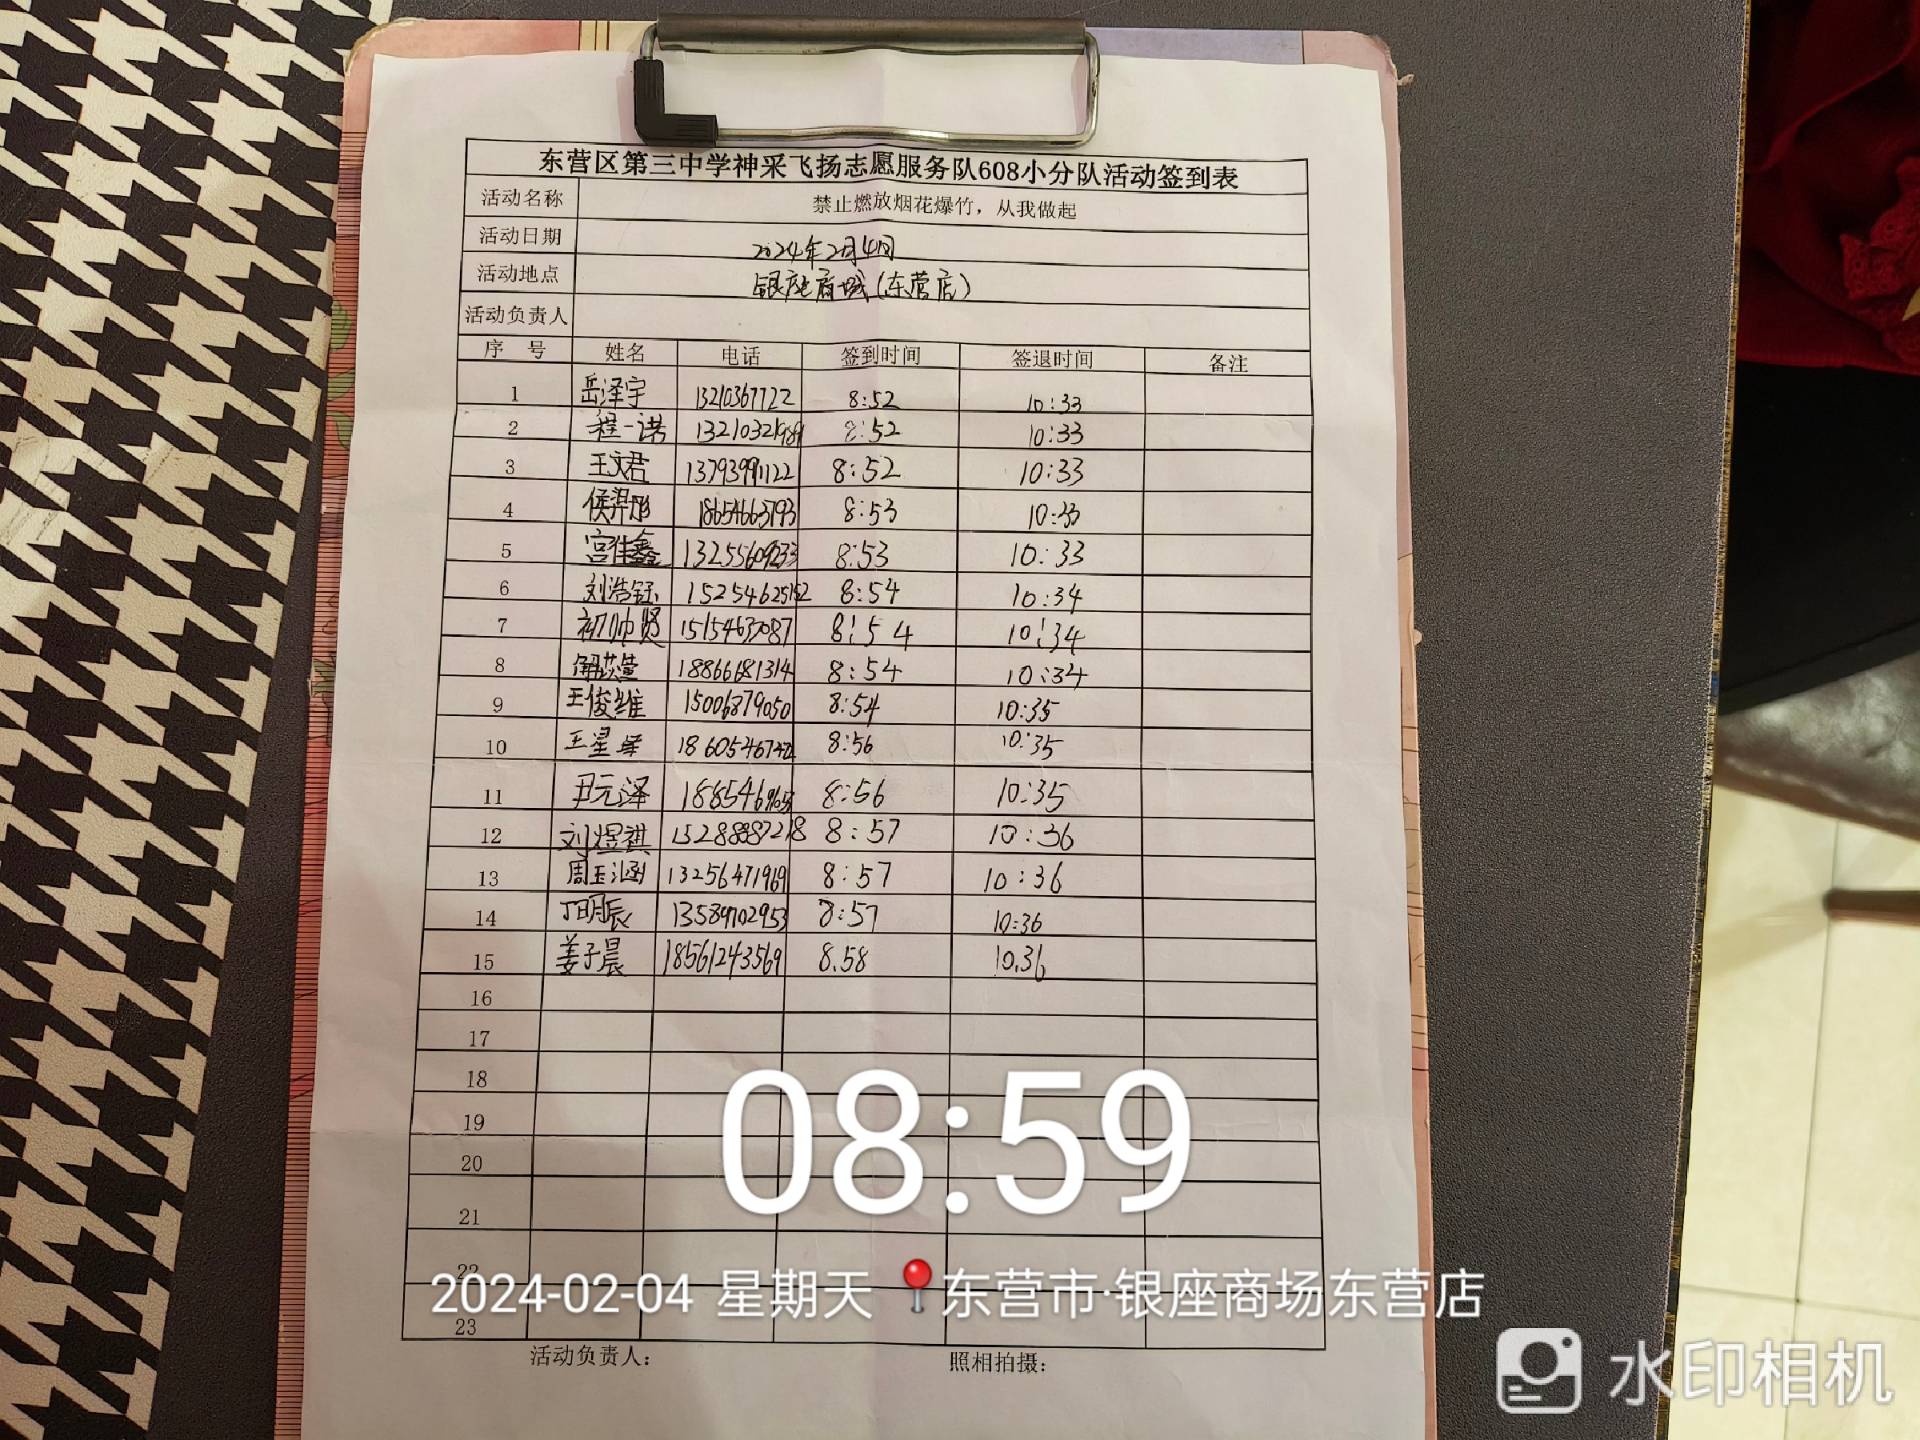 东营区第三中学神采飞扬志愿服务队608小分队活动签到表
活动名称 禁止燃放烟花爆竹，从我做起
活动日期 2024年2月4日
活动地点 银座商城(东营店)
活动负责人
序 号 姓名 电话 签到时间 签退时间 备注
1 岳泽宇 13210367722 8:52 10:33
2 程一诺 8:52 10:33
3 王文君 13793991122 8:52 10:33
4 18654663793 8:53 10:33
5 宫佳鑫 13255609233 8:53 10:33
6 刘浩钰 15254625152 8:54 10:34
7 初帅贤 15154637087 8:54 10:34
8 18866681314 8:54 10:34
9 王俊维 15006879050 8:54 10:35
10 王星 8:56 10:35
11 尹元泽 8:56 10:35
12 刘煜祺 8:57 10:36
13 周玉涵 13256471969 8:57 10:36
14 丁明辰 13589702953 8:57 10:36
15 姜子晨 18561243569 8.58 10.36
16
17
18
19
20
21
22
23
活动负责人： 照相拍摄：
08:59
2024-02-04 星期天 东营市·银座商场东营店
水印相机